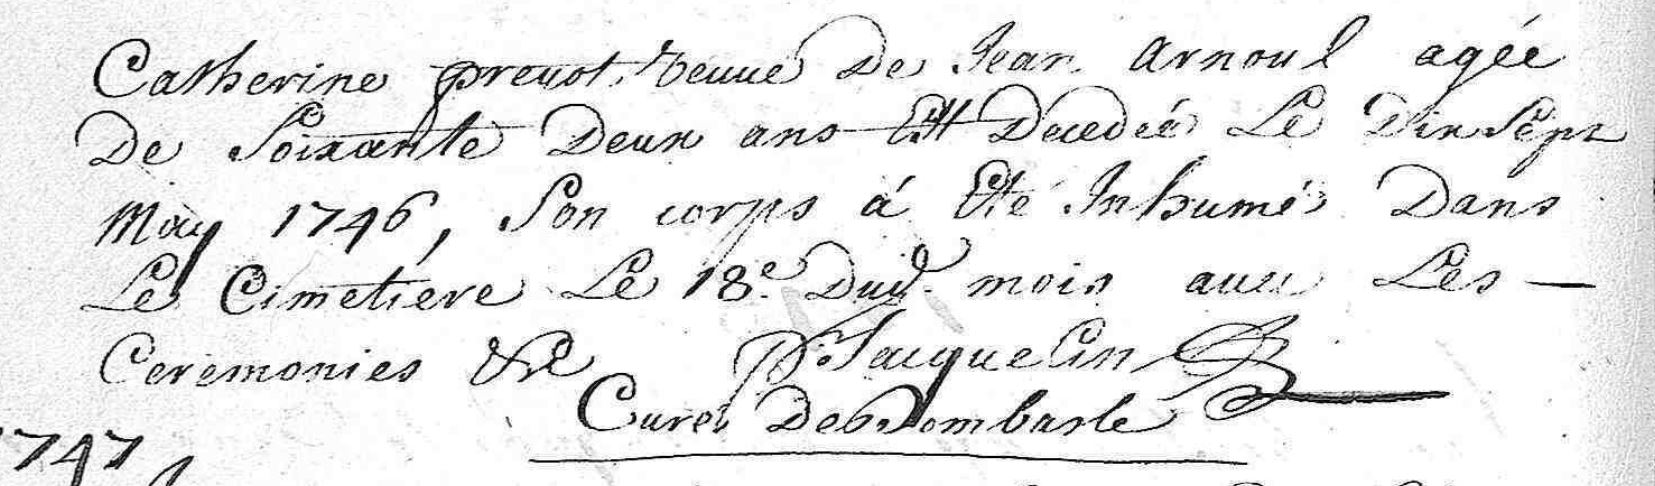 Catherine prevot, veuve De Jean Arnoul agée
De Soixante Deux ans Est Decedée Le Dix Sept
May 1746, Son corps á Eté Inhumé Dans
Le Cimetiére Le 18.e Dud. mois avec Les —
Ceremonies &c P. Jacquelin
Curé De Dombasle
1747